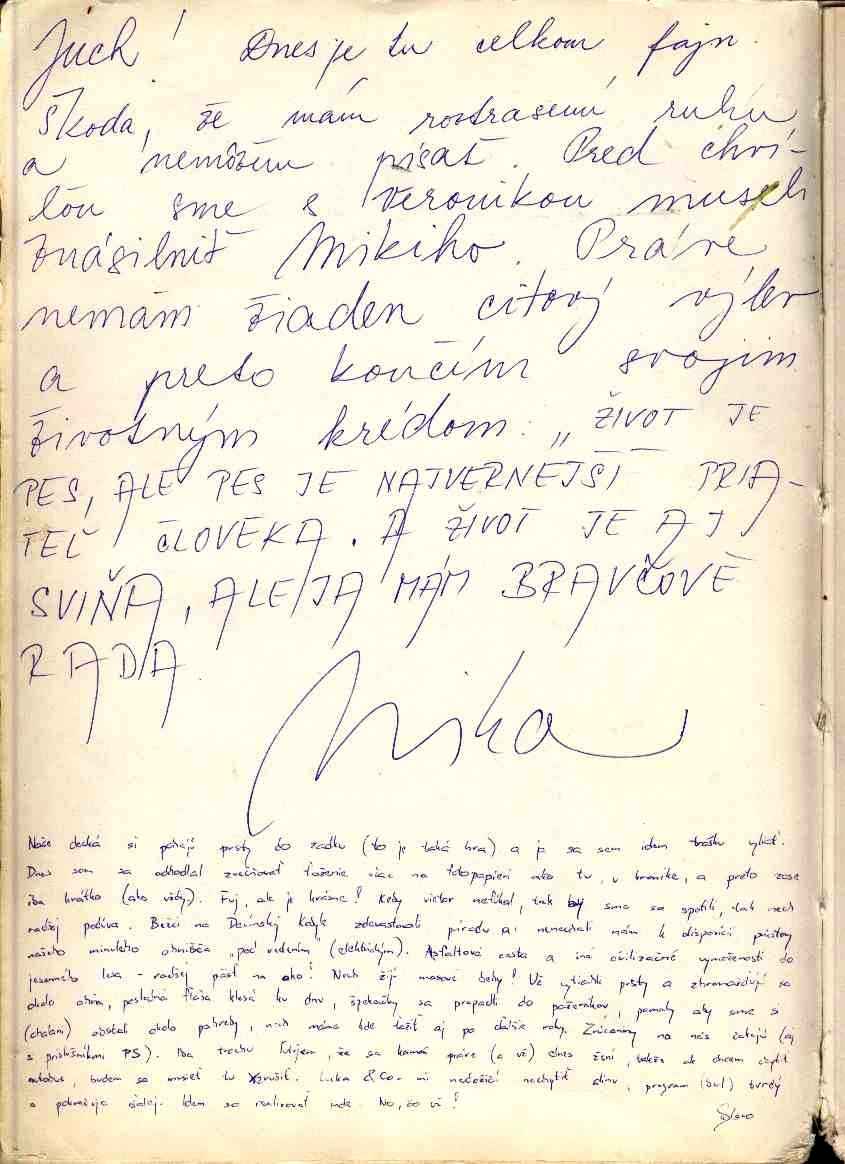 Juch! Dnes je tu celkom fajn.
Škoda, že mám roztrasenú ruku
a nemôžem písať. Pred chví-
ľou sme s Veronikou museli
znásilniť Mikiho. Práve
nemám žiaden citový výlev
a preto končím svojim
životným krédom: „ŽIVOT JE
PES, ALE PES JE NAJVERNEJŠÍ PRIA-
TEĽ ČLOVEKA. A ŽIVOT JE AJ
SVIŇA, ALE JA MÁM BRAVČOVÉ
RADA.
Nika
Naše decká si pchajú prsty do zadku (to je taká hra) a ja sa sem idem trošku vyliať.
Dnes som sa odhodlal zvečňovať ťaženie viac na fotopapieri ako tu, v kronike, a preto zase
iba krátko (ako vždy). Fuj, ale je krásne! Keby vietor nefúkal, tak by sme sa spotili, tak nech
radšej podúva. Bežci na Devínsky Kobyle zdevastovali prírodu a nenechali nám k dispozícii
našeho minulého ohnišťa „pod vedením" (elektrickým). Asfaltová cesta a iné civilizačné vymoženosti do
jesenného lesa - radšej päsť na oko! Nech žijú masové behy! Už vytiahli prsty a zhromažďujú sa
okolo ohňa, posledná fľaša klesá ku dnu, špekáčky sa prepadli do pažerákov, pomaly aby sme si
(chalani) obstali okolo pahreby, nech máme kde ťažiť aj po ďalšie roky. Zrúcaniny na nás čakajú (aj
s príslušníkmi PS). Iba trochu ľutujem, že sa kamoš práve (a už) dnes žení, takže ak chcem chytiť
autobus, budem sa musieť tu zrušiť. Luka & Co. mi nedočiní nechytiť dinu, program (bol) tvrdý
a pokračuje ďalej. Idem sa realizovať inde. No, čo už!